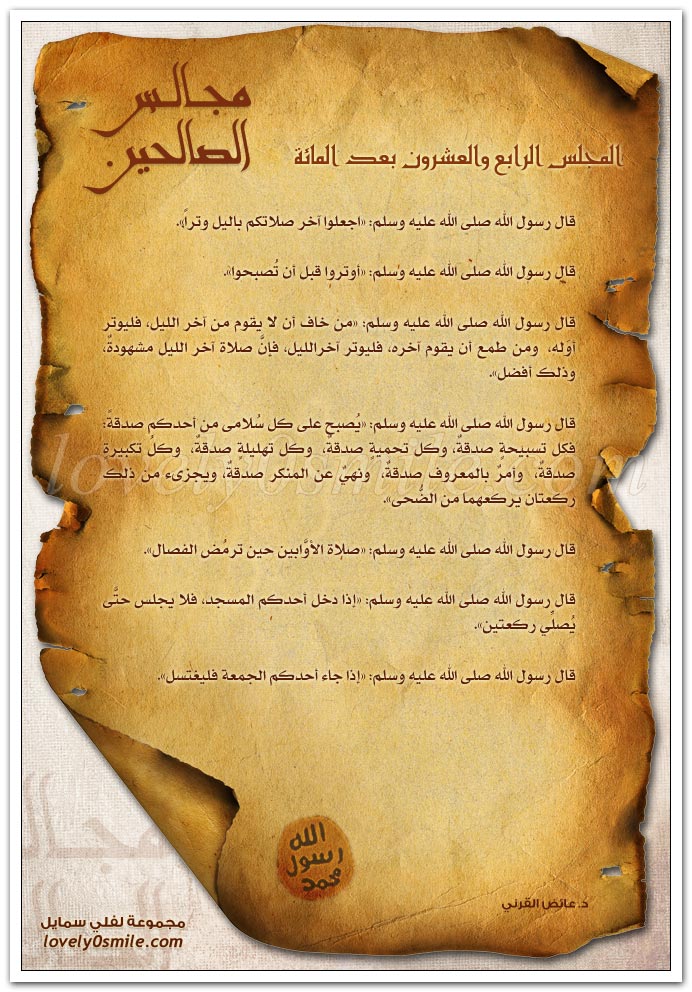 مجالس
الصالحين
المجلس الرابع والعشرون بعد المائة
قال رسول الله صلى الله عليه وسلم: «اجعلوا آخر صلاتكم باليل وتراً».
قال رسول الله صلى الله عليه وسلم: «أوتروا قبل أن تُصبحوا».
قال رسول الله صلى الله عليه وسلم: «من خاف أن لا يقوم من آخر الليل، فليوتر
أوله، ومن طمع أن يقوم آخره، فليوتر آخرالليل، فإنَّ صلاة آخر الليل مشهودةٌ،
وذلك أفضل».
قال رسول الله صلى الله عليه وسلم: «يُصبح على كل سُلامى من أحدكم صدقةً:
فكل تسبيحةٍ صدقةٌ، وكل تحميةٍ صدقةٌ، وكل تهليلةٍ صدقةٌ، وكلُ تكبيرةٍ
صدقةٌ، وأمرٌ بالمعروف صدقةٌ، ونهيٌ عن المنكر صدقةٌ، ويجزىء من ذلك
ركعتان يركعهما من الضُّحى».
قال رسول الله صلى الله عليه وسلم: «صلاة الأوَّابين حين ترمُض الفصال».
قال رسول الله صلى الله عليه وسلم: «إذا دخل أحدكم المسجد، فلا يجلس حتَّى
يُصلِّي ركعتين».
قال رسول الله صلى الله عليه وسلم: «إذا جاء أحدكم الجمعة فليغتسل».
الله
رسول
محمد
د.عائض القرني
مجموعة لفلي سمايل
lovely0smile.com
lovely0smile.com